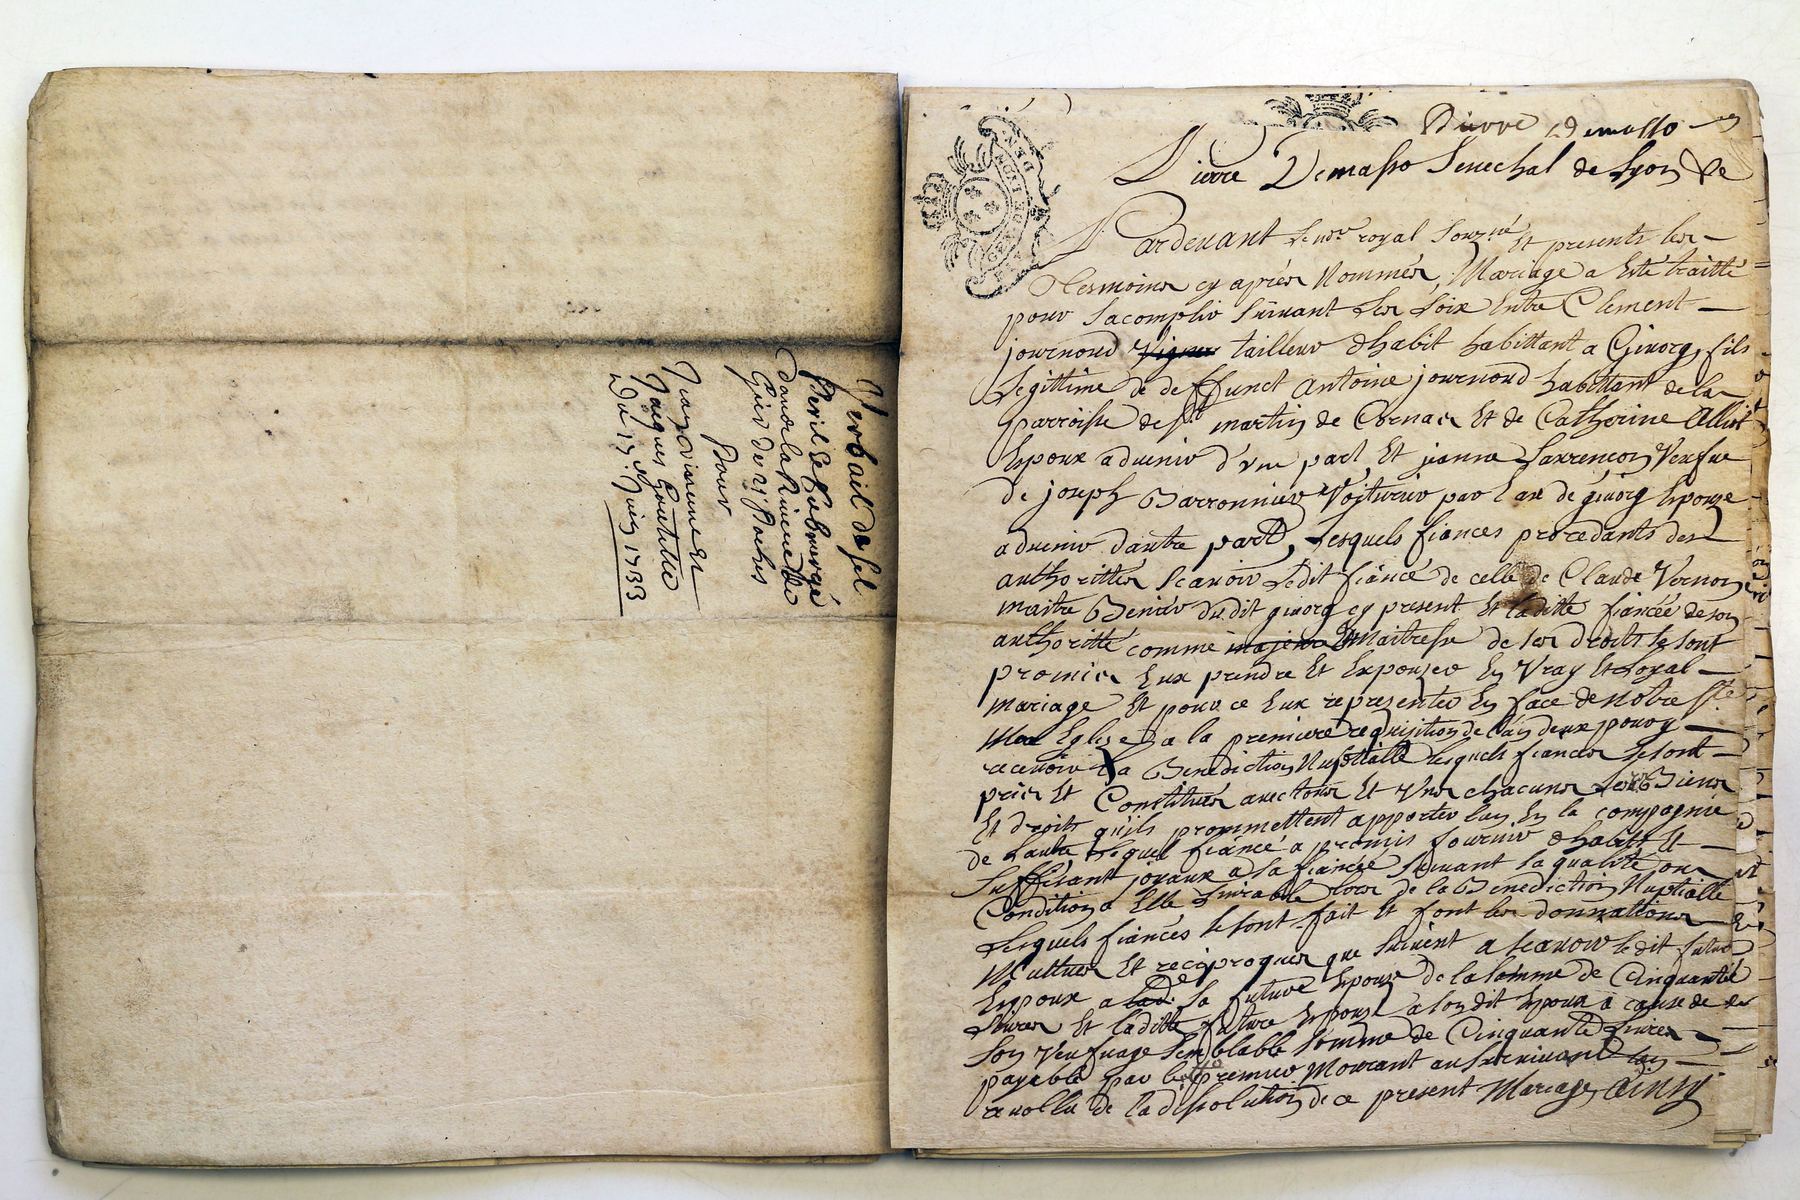 Verbail de sel
Peril & submergé
dans la Riviere de
Gier de 29 Poches
Pour
Jaques Goutelle
Du 17e Juin 1733
GEN DE LYON
Pierre Demasso
Pierre Demasso Senechal de Lyon &c
Pardevant le nore royal soubzné et presents les
tesmoins cy apres nommés, Mariage a esté traitté
pour sacomplir suivant les loix entre Clement
journoud tailleur dhabit habittant a Givors, fils
legittime de deffunct Antoine journoud habittant de la
parroisse de st martin de Cornas et de Catherine Alliot
Espoux advenir d'une part, Et jeanne Larrencon Veufve
de joseph Barronnier Voiturier par Eau de givors Espouze
advenir d'autre part, Lesquels fiances procedants des
authorittés scavoir ledit fiancé de celle de Claude Vernon
maitre Benier dudit givors cy present Et laditte fiancée de son
authoritté comme majeure Maitresse de ses droits se sont
promis Eux prendre Et Expouzer En Vray Et Loyal
mariage Et pour ce Eux representer En face de notre Ste
Mere Eglise a la premiere requisition de l'un deux pour y
recevoir la Benediction Nuptialle lesquels fiances se sont
pris Et Constitués avec tous Et Uns chacuns leurs Biens
Et droits qu'ils prommettent apporter lun En la compagnie
de lautre lequel fiancé a promis fournir dhabits Et
suffisant joyaux a sa fiancée suivant sa qualité ou
Condition a Elle livrable lors de la Benediction Nuptialle
Lesquels fiancés se sont fait Et font les donnations
Mutues Et reciproques que suivent a scavoir ledit futur
Espoux a lad. sa future Epouze de la somme de Cinquante
livres Et laditte future Espouze a son dit Espoux a cause de
son veufvage semblable somme de Cinquante livres
payable par le premier Mourant au survivant
avollu de la dissolution de ce present Mariage, Ainsy